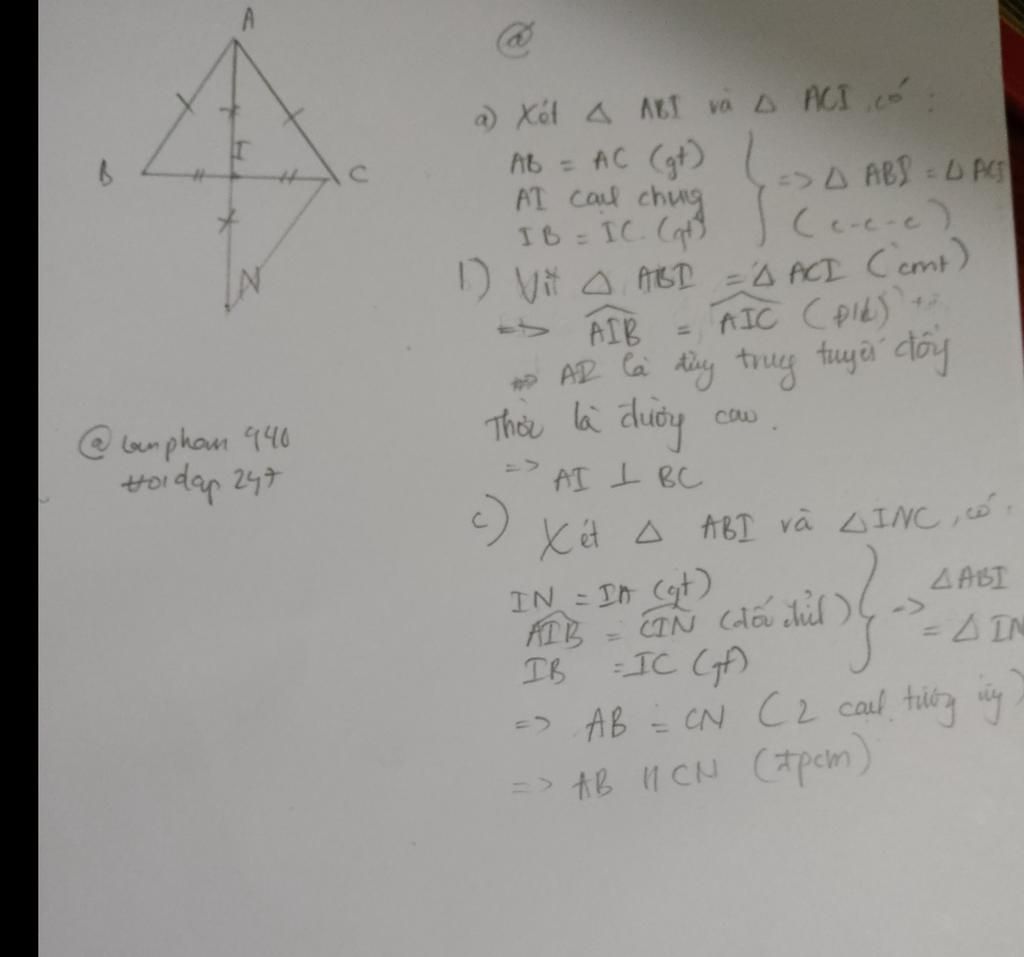 A
B
I
C
N
@
a) Xét △ ABI và △ ACI, có:
AB = AC (gt)
AI cạnh chung
IB = IC (gt)
=> △ ABI = △ ACI
(c-c-c)
△ ABI = △ ACI (cmt)
=> AIB = AIC
=> AI là
Thời là đường cao.
=> AI ⊥ BC
c) Xét △ ABI và △INC, có:
IN = IA (gt)
AIB = CIN (đối đỉnh)
IB = IC (gt)
=> △ABI
= △ IN
=> AB = CN (2 cạnh tương ứng)
=> AB // CN (đpcm)
@lanphan 940
hoidap 247